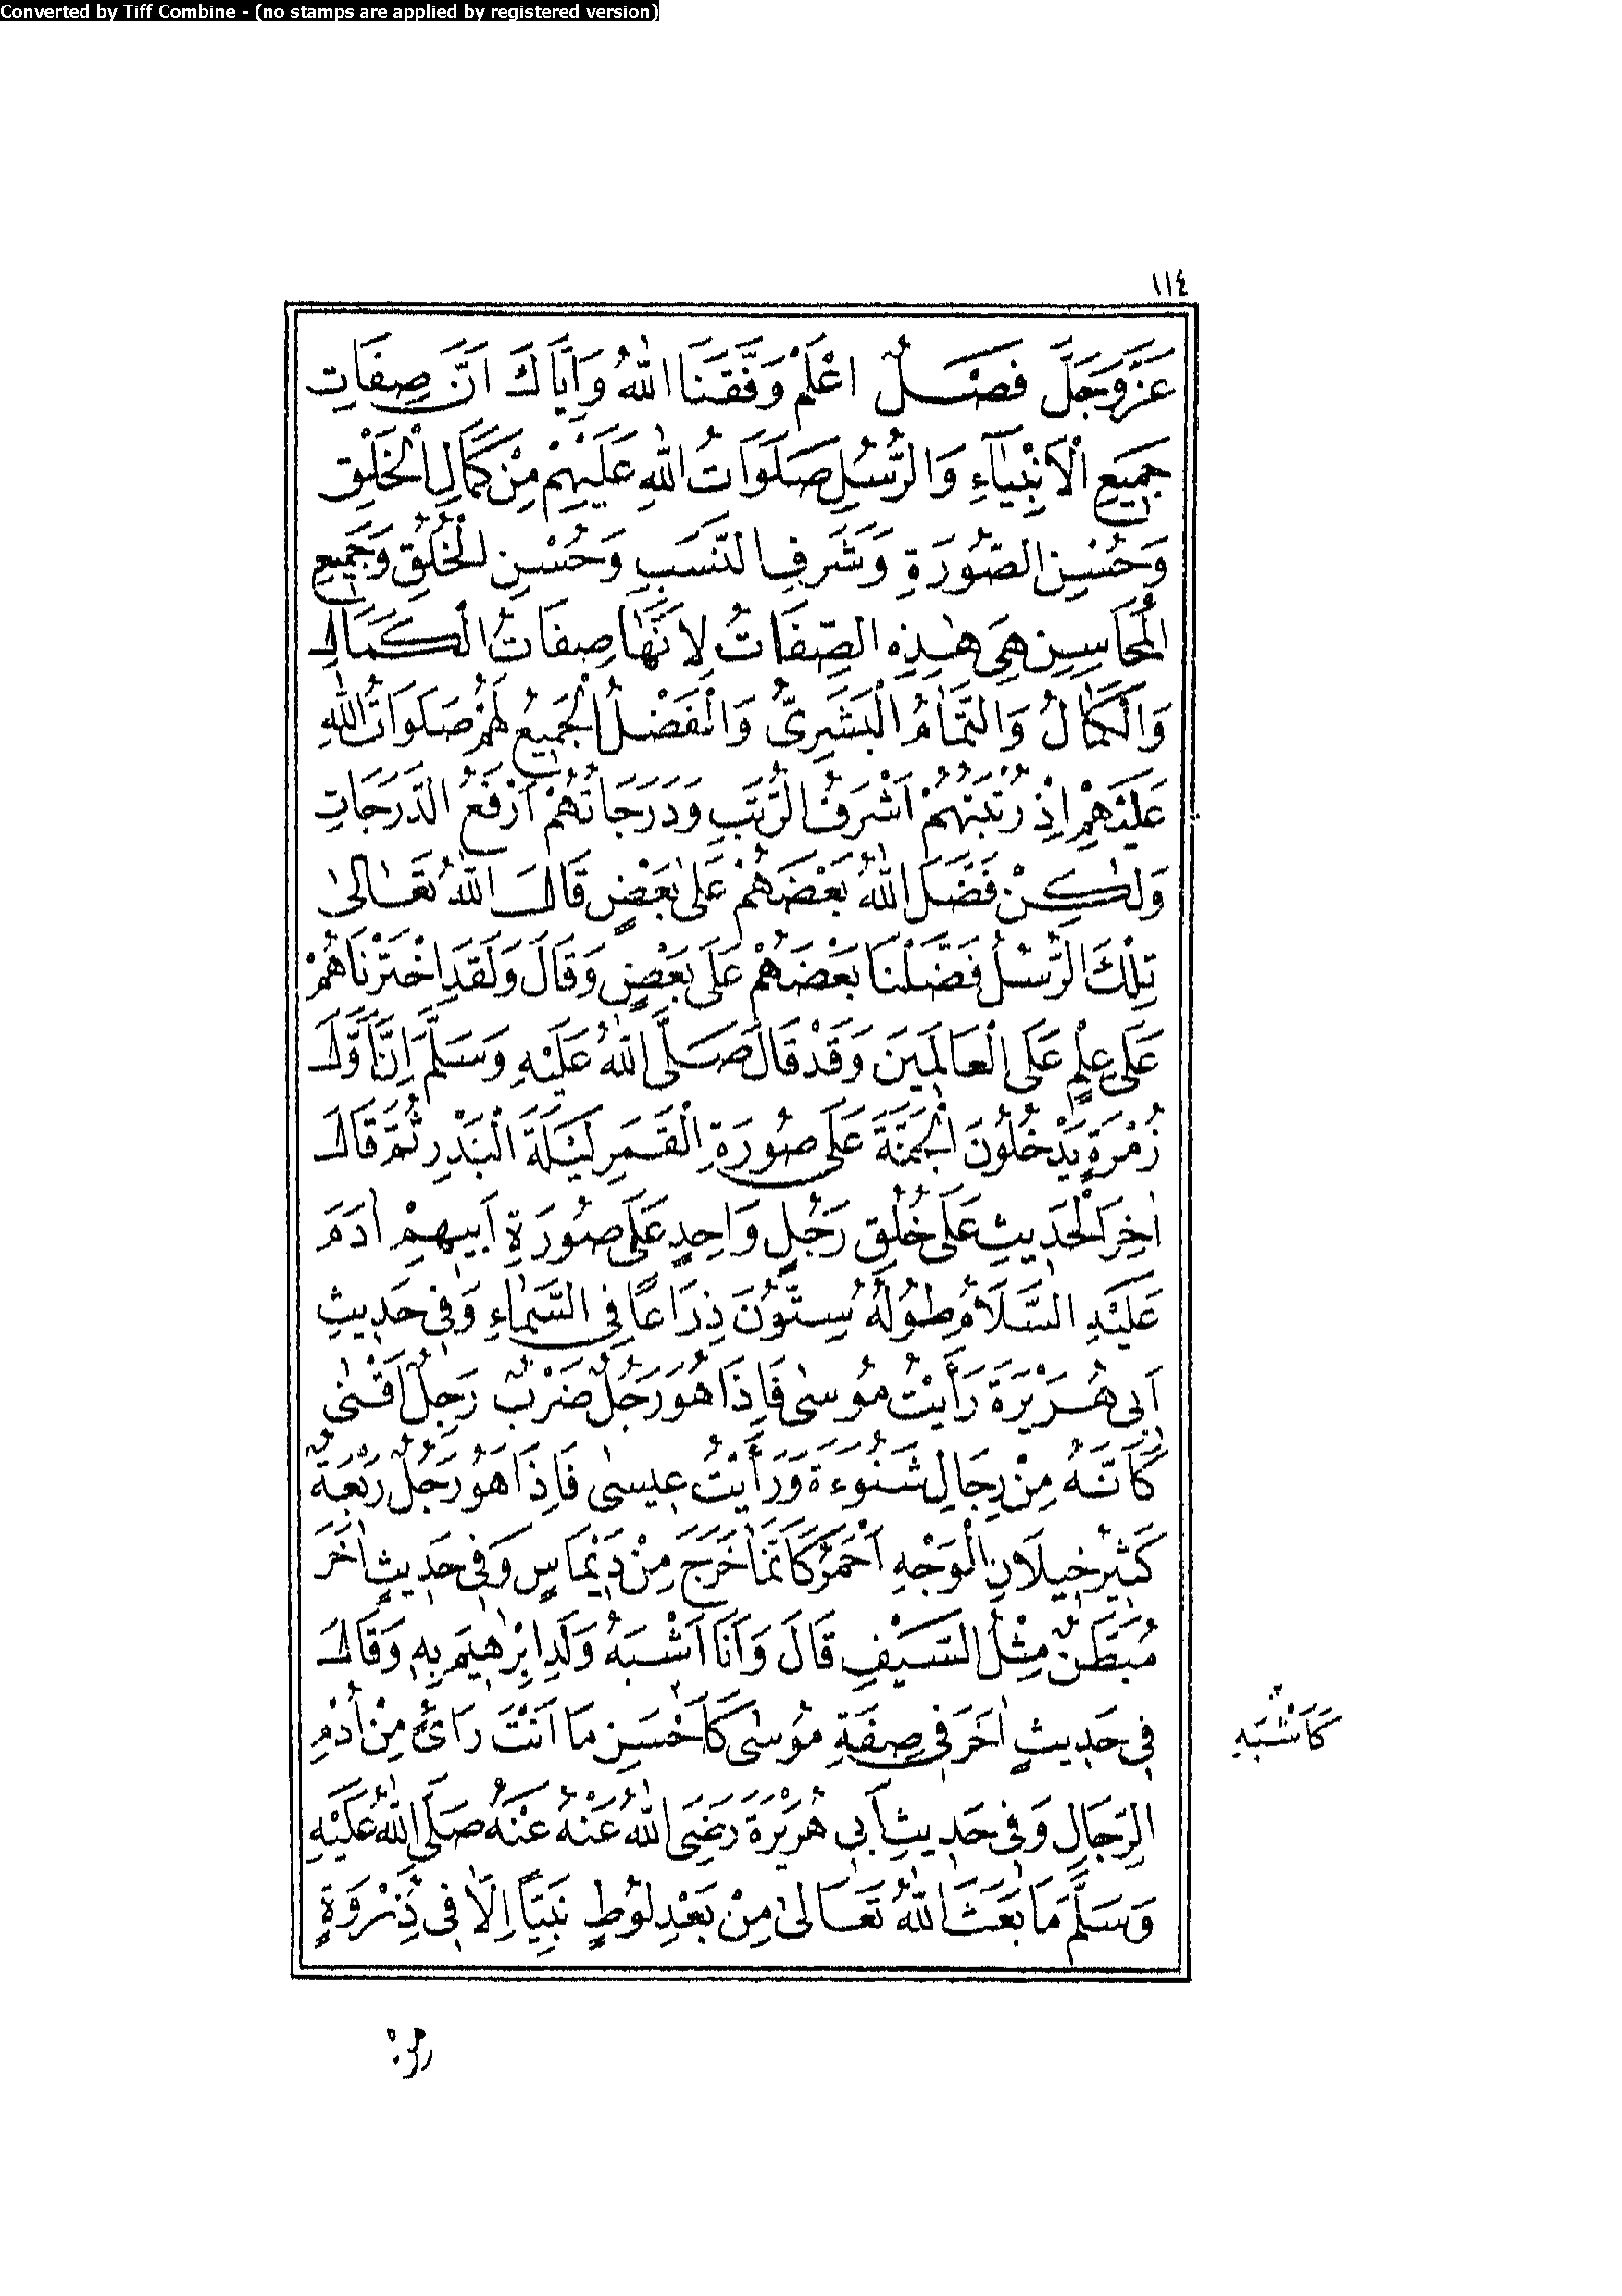 Converted by Tiff Combine - (no stamps are applied by registered version)
١١٤
عَزَّ وَجَلَّ فَصْلٌ اعْلَمْ وَفَّقَنَا اللهُ وَاِيَّاكَ اَنَّ صِفَاتِ
جَمِيعِ الْاَنْبِيَاءِ وَالرُّسُلِ صَلَوَاتُ اللهِ عَلَيْهِمْ مِنْ كَمَالِ الْخَلْقِ
وَحُسْنِ الصُّورَةِ وَشَرَفِ النَّسَبِ وَحُسْنِ الْخُلُقِ وَجَمِيعِ
الْمَحَاسِنِ هِيَ هٰذِهِ الصِّفَاتُ لِاَنَّهَا صِفَاتُ الْكَمَالِ
وَالْكَمَالُ وَالتَّمَامُ الْبَشَرِيُّ وَالْفَضْلُ الْجَمِيعُ لَهُمْ صَلَوَاتُ اللهِ
عَلَيْهِمْ اِذْ رُتْبَتُهُمْ اَشْرَفُ الرُّتَبِ وَدَرَجَاتُهُمْ اَرْفَعُ الدَّرَجَاتِ
وَلٰكِنْ فَضَّلَ اللهُ بَعْضَهُمْ عَلٰى بَعْضٍ قَالَ اللهُ تَعَالٰى
تِلْكَ الرُّسُلُ فَضَّلْنَا بَعْضَهُمْ عَلَى بَعْضٍ وَقَالَ وَلَقَدِ اخْتَرْنَاهُمْ
عَلَى عِلْمٍ عَلَى الْعَالَمِينَ وَقَدْ قَالَ صَلَّى اللهُ عَلَيْهِ وَسَلَّمَ اِنَّ اَوَّلَ
زُمْرَةٍ يَدْخُلُونَ الْجَنَّةَ عَلَى صُورَةِ الْقَمَرِ لَيْلَةَ الْبَدْرِ ثُمَّ قَالَ
اٰخِرَ الْحَدِيثِ عَلَى خُلُقِ رَجُلٍ وَاحِدٍ عَلَى صُورَةِ اَبِيهِمْ اٰدَمَ
عَلَيْهِ السَّلَامُ طُولُهُ سِتُّونَ ذِرَاعًا فِي السَّمَاءِ وَفِي حَدِيثِ
اَبِي هُرَيْرَةَ رَأَيْتُ مُوسٰى فَاِذَا هُوَ رَجُلٌ ضَرْبٌ رَجِلٌ اَقْنٰى
كَاَنَّهُ مِنْ رِجَالِ شَنُوءَةَ وَرَأَيْتُ عِيسٰى فَاِذَا هُوَ رَجُلٌ رَبْعَةٌ
كَثِيرُ خِيلَانِ الْوَجْهِ اَحْمَرُ كَاَنَّمَا خَرَجَ مِنْ دِيمَاسٍ وَفِي حَدِيثٍ اٰخَرَ
مُبَطَّنٌ مِثْلُ السَّيْفِ قَالَ وَاَنَا اَشْبَهُ وَلَدِ اِبْرٰهِيمَ بِهِ وَقَالَ
فِي حَدِيثٍ اٰخَرَ فِي صِفَةِ مُوسٰى كَاَحْسَنِ مَا اَنْتَ رَاءٍ مِنْ اُدْمِ
كَاَشْبَهِ
الرِّجَالِ وَفِي حَدِيثِ اَبِي هُرَيْرَةَ رَضِيَ اللهُ عَنْهُ عَنْهُ صَلَّى اللهُ عَلَيْهِ
وَسَلَّمَ مَا بَعَثَ اللهُ تَعَالٰى مِنْ بَعْدِ لُوطٍ نَبِيًّا اِلَّا فِي ذِرْوَةٍ